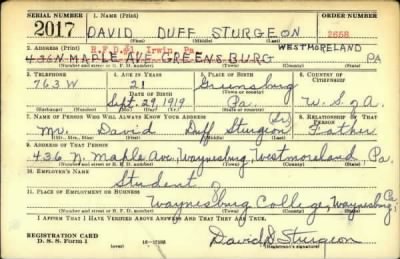 SERIAL NUMBER 1. NAME (Print) ORDER NUMBER
2017 DAVID DUFF STURGEON 2658
(First) (Middle) (Last)
2. ADDRESS (Print) R.F.D. #1, Irwin, Pa. WESTMORELAND
436 N MAPLE AVE GREENSBURG PA
(Number and street or R. F. D. number) (Town) (County) (State)
3. TELEPHONE 4. AGE IN YEARS 5. PLACE OF BIRTH 6. COUNTRY OF CITIZENSHIP
763 W 21 Greensburg
DATE OF BIRTH (Town or county)
Sept. 29, 1919 Pa. U. S. of A.
(Exchange) (Number) (Mo.) (Day) (Yr.) (State or country)
7. NAME OF PERSON WHO WILL ALWAYS KNOW YOUR ADDRESS 8. RELATIONSHIP OF THAT PERSON
Mr. David Duff Sturgeon (Sr) Father
(Mr., Mrs., Miss) (First) (Middle) (Last)
9. ADDRESS OF THAT PERSON
436 N. Maple Ave, Waynesburg, Westmoreland, Pa.
(Number and street or R. F. D. number) (Town) (County) (State)
10. EMPLOYER'S NAME
Student
11. PLACE OF EMPLOYMENT OR BUSINESS
Waynesburg College, Waynesburg,
(Number and street or R. F. D. number) (Town) (County) (State)
I AFFIRM THAT I HAVE VERIFIED ABOVE ANSWERS AND THAT THEY ARE TRUE.
REGISTRATION CARD
D. S. S. Form 1 David D Sturgeon
(Registrant's signature)